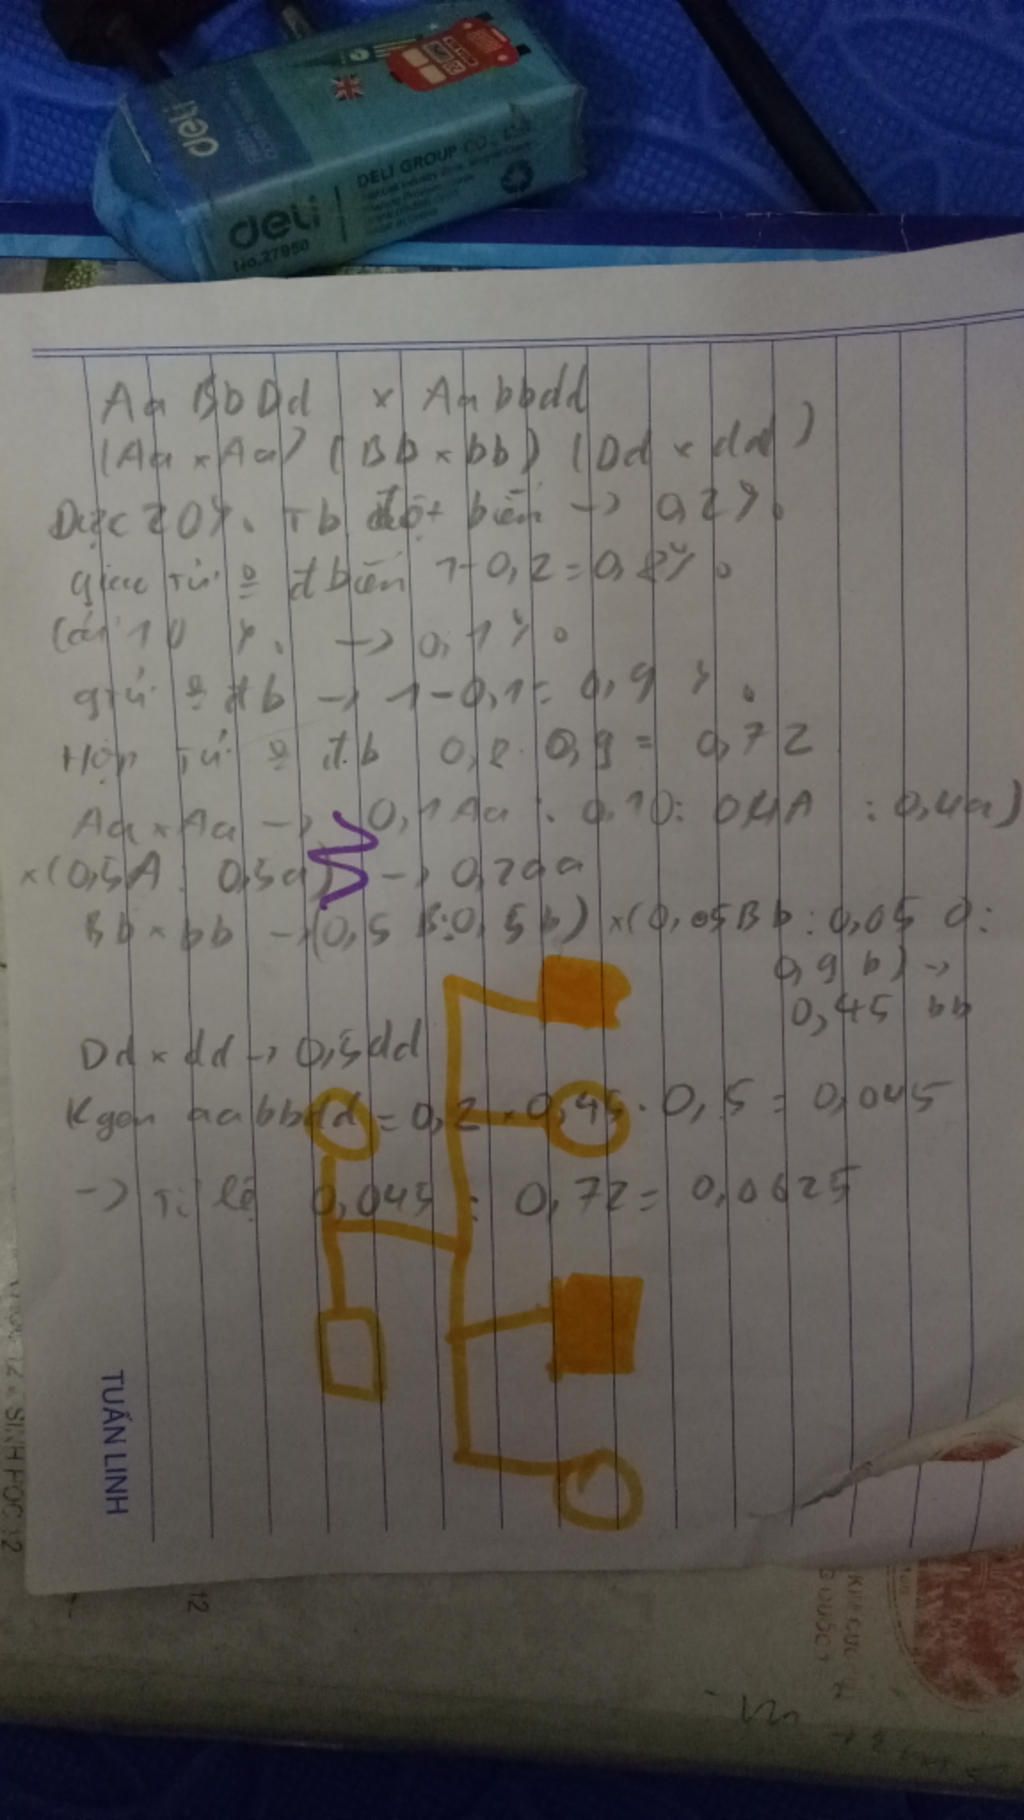 deli
deli
No.27950
DELI GROUP CO., LTD.
Aa Bb Dd x Aa bbdd
(Aa x Aa) (Bb x bb) (Dd x dd)
Đực 20%. Tb đột biến -> 0,2%.
giao tử o đ biến 1-0,2 = 0,8%.
Cái 10 %. -> 0,1%.
gtử o đb -> 1-0,1 = 0,9 %.
Hợp tử o đ.b 0,8 . 0,9 = 0,72
Aa x Aa -> 0,1Aa : 0,10 : 0,4A : 0,4a)
x (0,5A : 0,5a) -> 0,2aa
Bb x bb -> (0,5 B:0,5b) x (0,05Bb : 0,05 0 :
0,9 b) ->
0,45 bb
Dd x dd -> 0,5dd
Kgen aabbdd = 0,2 . 0,45 . 0,5 = 0,045
-> Tỉ lệ 0,045 : 0,72 = 0,0625
TUẤN LINH
12 - SINH HỌC 12
12